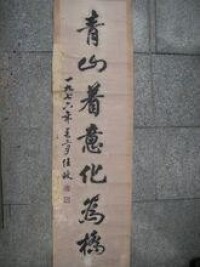 青山着意化為橋
一九七六年